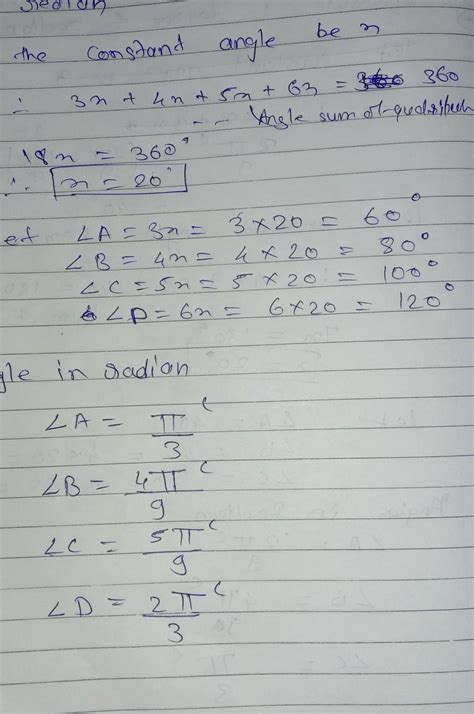 the constand angle be x
∴ 3x + 4x + 5x + 6x = 360
-- Angle sum of
18x = 360°
∴ x = 20°
et ∠A = 3x = 3×20 = 60°
∠B = 4x = 4×20 = 80°
∠C = 5x = 5×20 = 100°
∠D = 6x = 6×20 = 120°
gle in radian
∠A = π/3 c
∠B = 4π/9 c
∠C = 5π/9 c
∠D = 2π/3 c